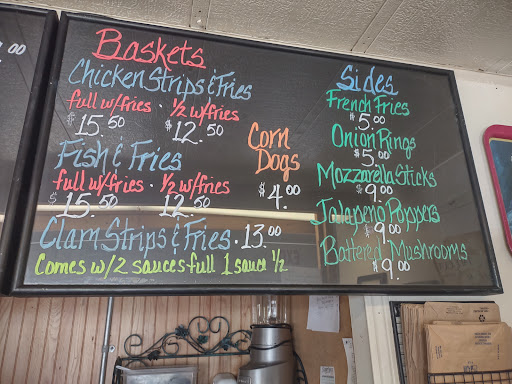 .00
Baskets
Chicken Strips & Fries
full w/fries · 1/2 w/fries
$15.50 $12.50
Fish & Fries
full w/fries · 1/2 w/fries
$15.50 12.50
Clam Strips & Fries · 13.00
Comes w/2 sauces full 1 sauce 1/2
Corn
Dogs
$4.00
Sides
French Fries
$5.00
Onion Rings
$5.00
Mozzarella Sticks
$9.00
Jalapeno Poppers
$9.00
Battered Mushrooms
$9.00